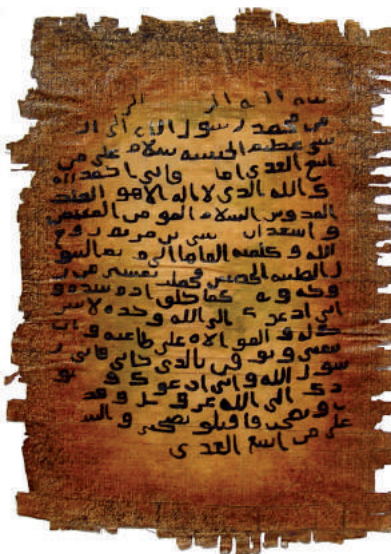 بسم الله الر الر
من محمد رسول الله الى الن
عظيم الحبشة سلام على من
اتبع الهدى اما فاني احمد الي
ك الله الذي لا اله الا هو الملك
القدوس السلام المومن المهيمن
و اشهد ان عيسى بن مريم روح
الله و كلمته القاها الى مريم البتو
ل الطيبة الحصينة فحملت بعيسى من ر
وحه و كما خلق ادم بيده و
اني ادعوك الى الله وحده لا شر
يك له و الموالاه على طاعته و ان
تتبعني و توقن بالذي جاني فاني ر
سول الله و اني ادعوك و جنو
دك الى الله عز و جل و قد
و نصحت فاقبلو نصيحتي و السلم
على من اتبع الهدى